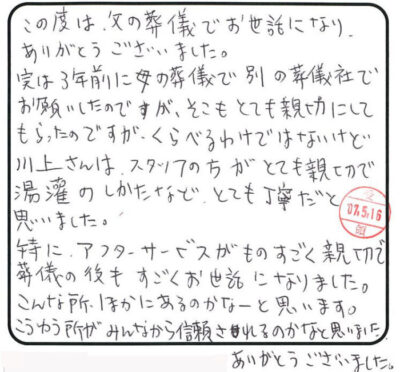 この度は、父の葬儀でお世話になり、
ありがとうございました。
実は3年前に母の葬儀で別の葬儀社で
お願いしたのですが、そこもとても親切にして
もらったのですが、くらべるわけではないけど
川上さんは、スタッフのちがとても親切で
湯灌のしかたなど、とても丁寧だと
思いました。
特に、アフターサービスがものすごく親切で
葬儀の後もすごくお世話になりました。
こんな所、ほかにあるのかなーと思います。
こうゆう所がみんなから信頼されるのかなと思いました。
ありがとうございました。
07.5.16